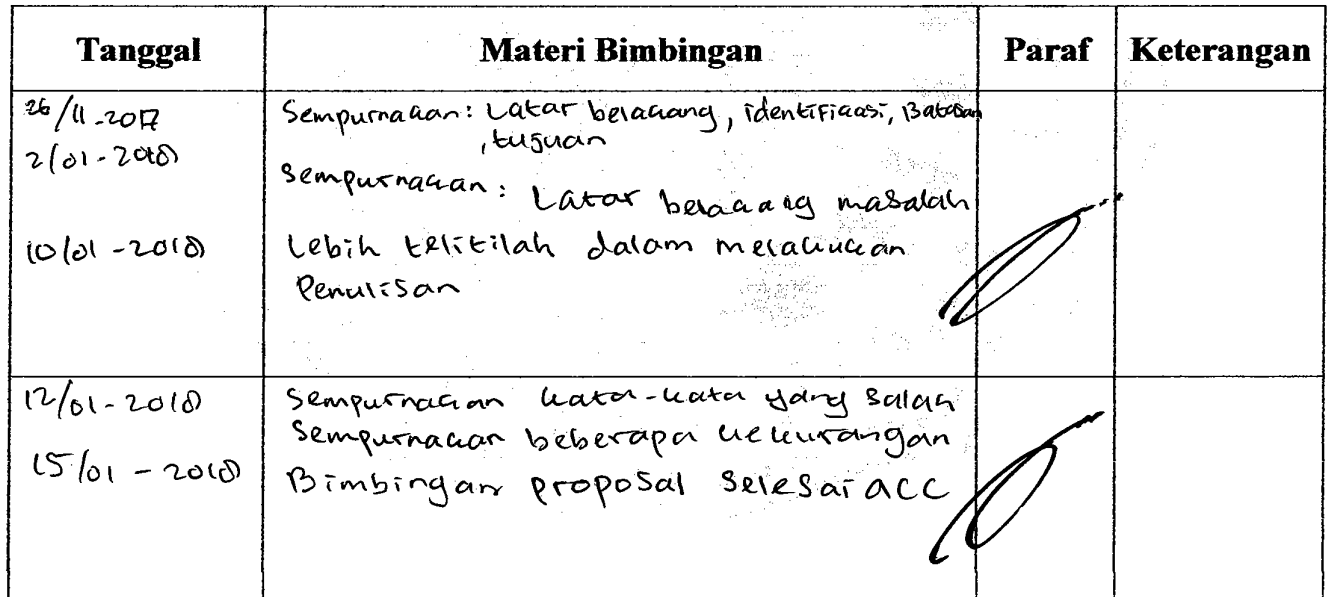 Tanggal Materi Bimbingan Paraf Keterangan
26/11-2017 Sempurnakan: Latar belakang, identifikasi, Batasan
, tujuan
2/01-2018
Sempurnakan: Latar belakang masalah
10/01-2018 Lebih telitilah dalam melakukan
Penulisan
12/01-2018 Sempurnakan kata-kata yang salah
Sempurnakan beberapa kekurangan
15/01-2018 Bimbingan proposal selesai ACC